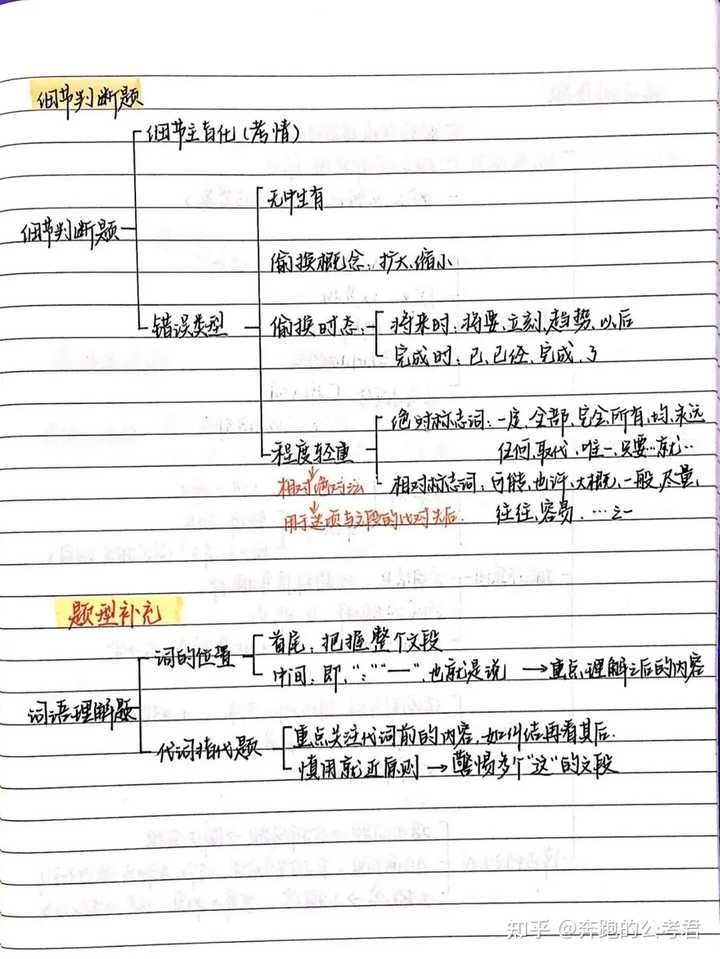 细节判断题
细节主旨化(考情)
无中生有
细节判断题
偷换概念:扩大、缩小
错误类型
偷换时态:
将来时:将要、立刻、趋势、以后
完成时:已、已经、完成、了
程度轻重
绝对标志词:一定、全部、完全、所有、均、永远
任何、取代、唯一、只要…就…
相对绝对法
相对标志词:可能、也许、大概、一般、尽量、
往往、容易、…之一
用于选项与文段的比对关后.
题型补充
词的位置
首尾:把握整个文段
中间:即,":""——",也就是说 →重点理解之后的内容
词语理解题
代词指代题
重点关注代词前的内容,如纠结再看其后.
慎用就近原则→警惕多个"这"的文段
知乎 @奔跑的公考君